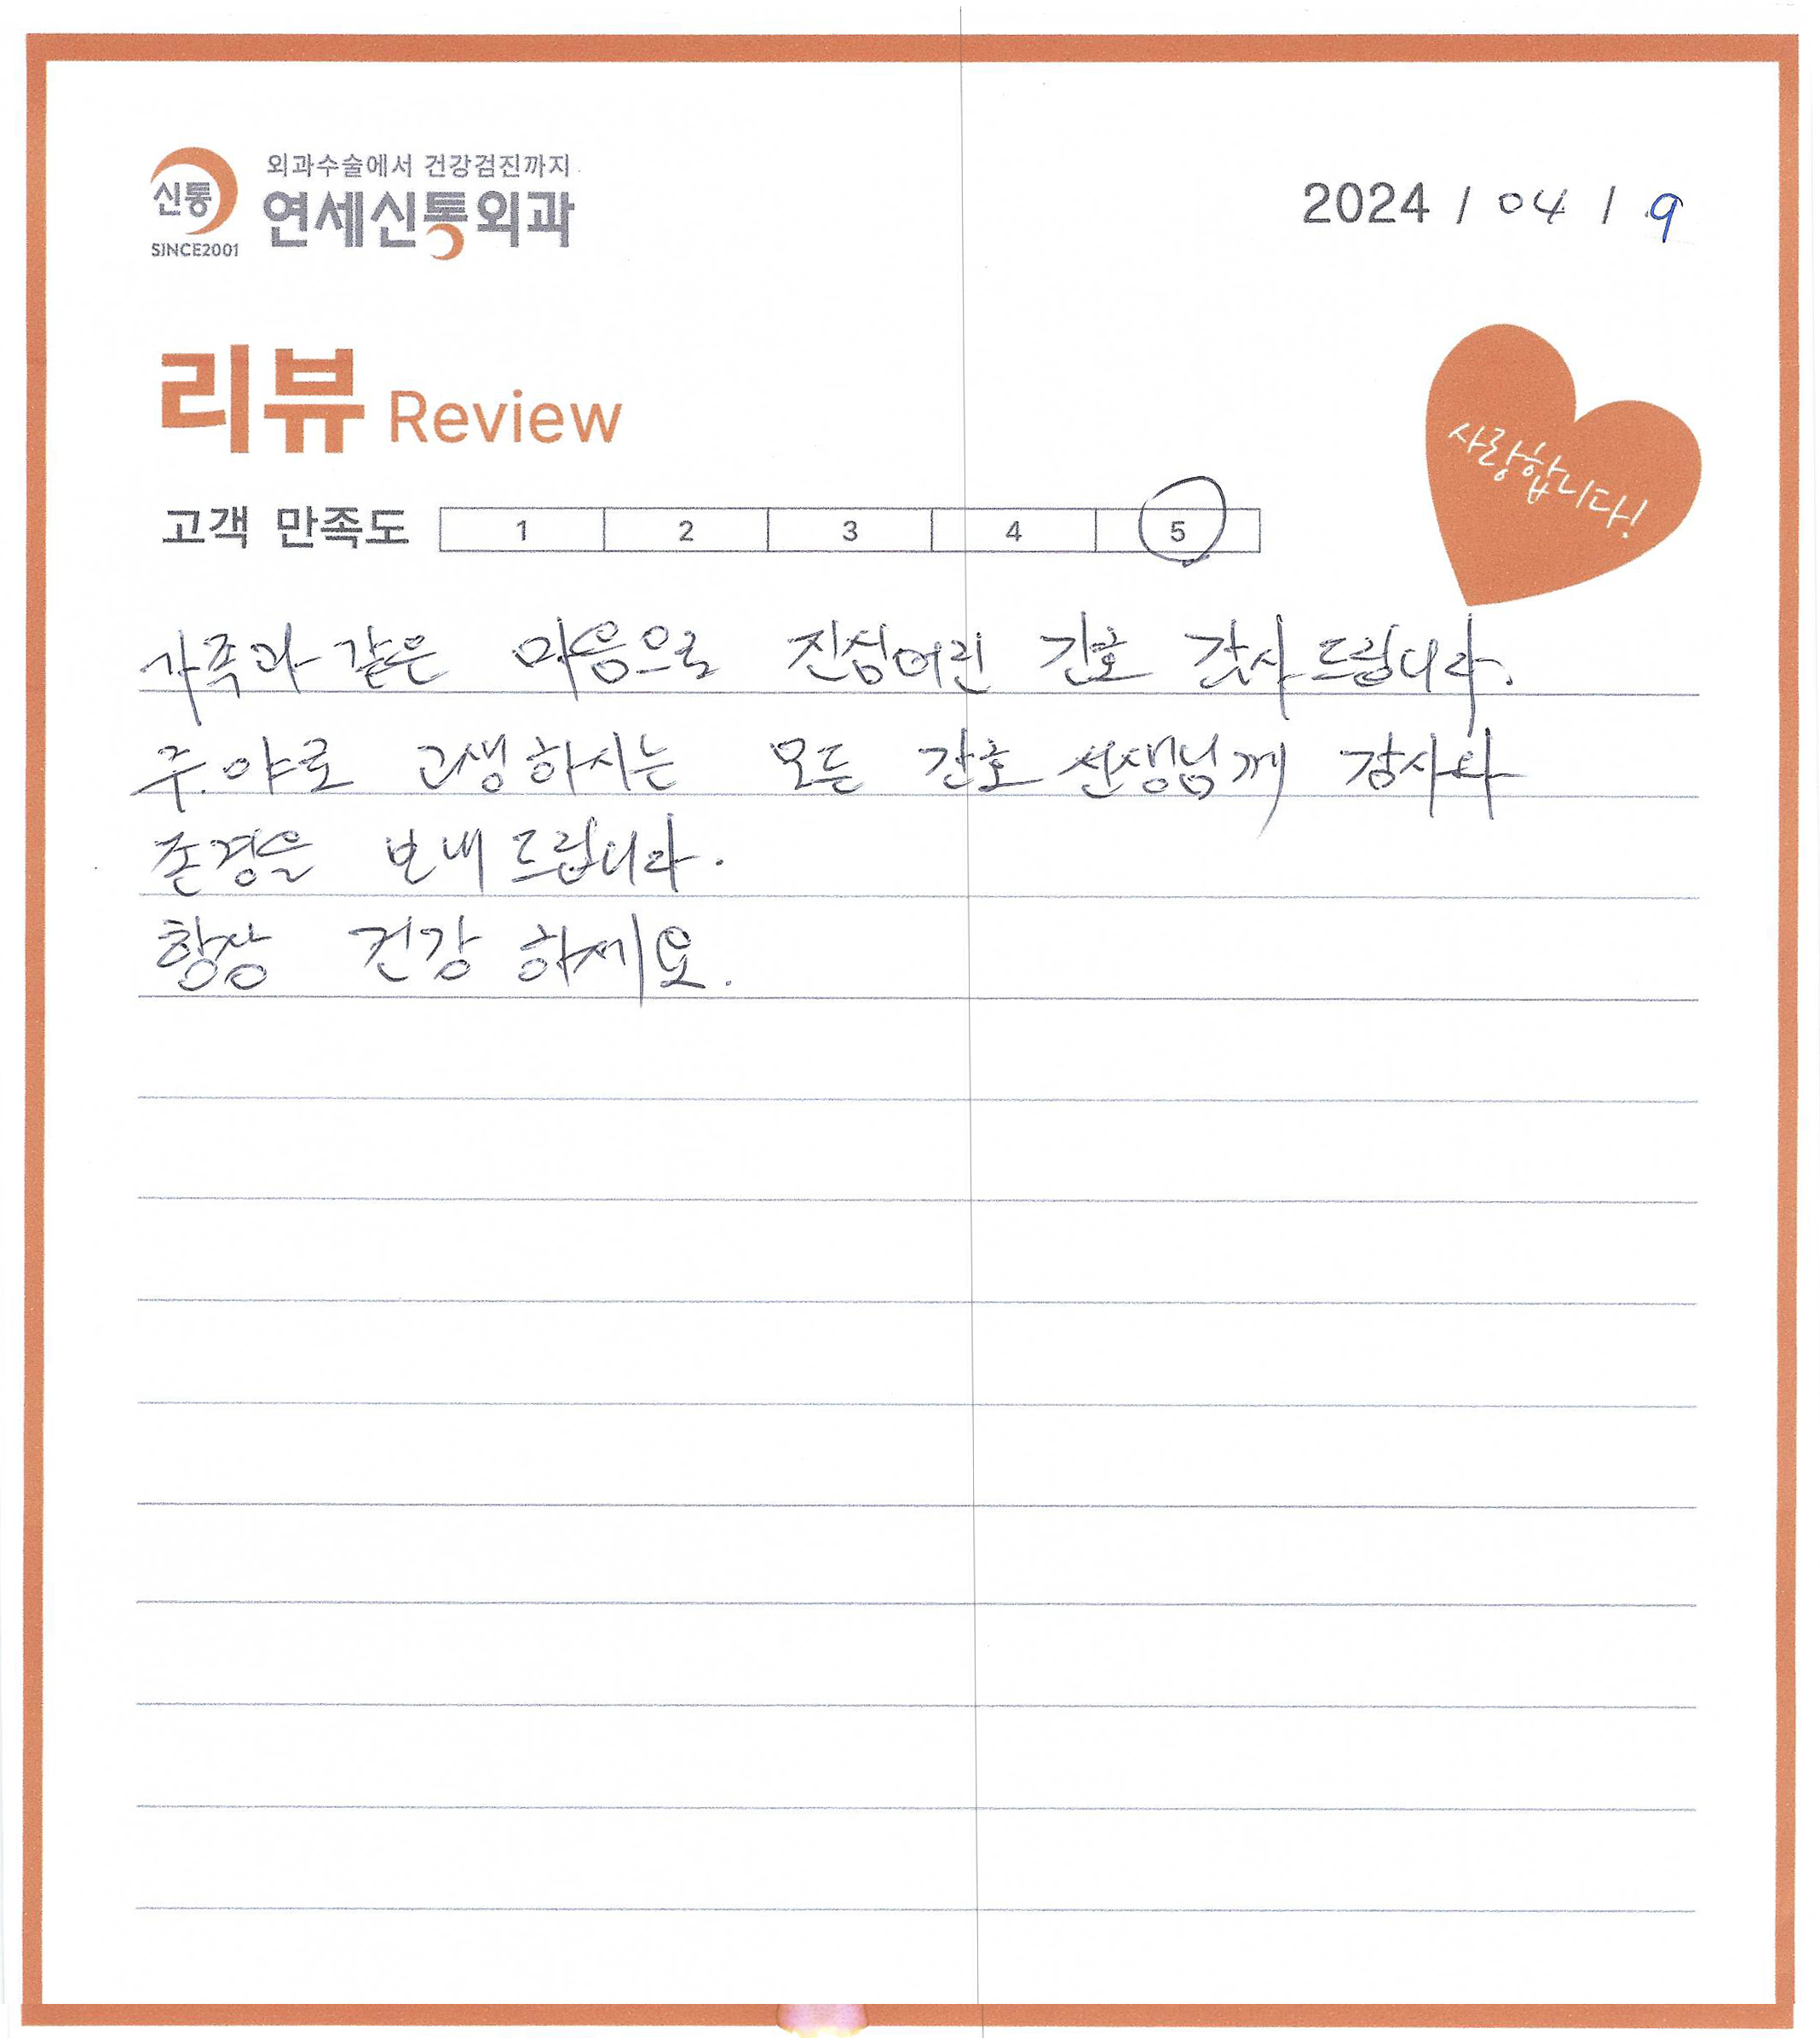 신통
SINCE2001
외과수술에서 건강검진까지
연세신통외과
2024 / 04 / 9
리뷰 Review
사랑합니다!
고객 만족도 1 2 3 4 5
가족과 같은 마음으로 진심어린 간호 감사드립니다.
주.야로 고생하시는 모든 간호 선생님께 감사와
존경을 보내드립니다.
항상 건강 하세요.